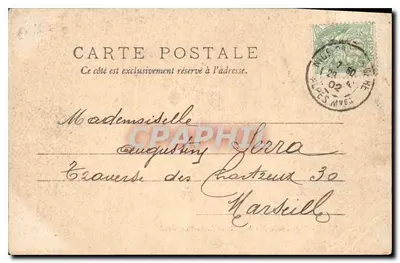 CARTE POSTALE
Ce côté est exclusivement réservé à l'adresse.
Mademoiselle
Augustine Serra
Traverse des Chartreux 30
Marseille
CPAPHIL
ALPES MMES
02